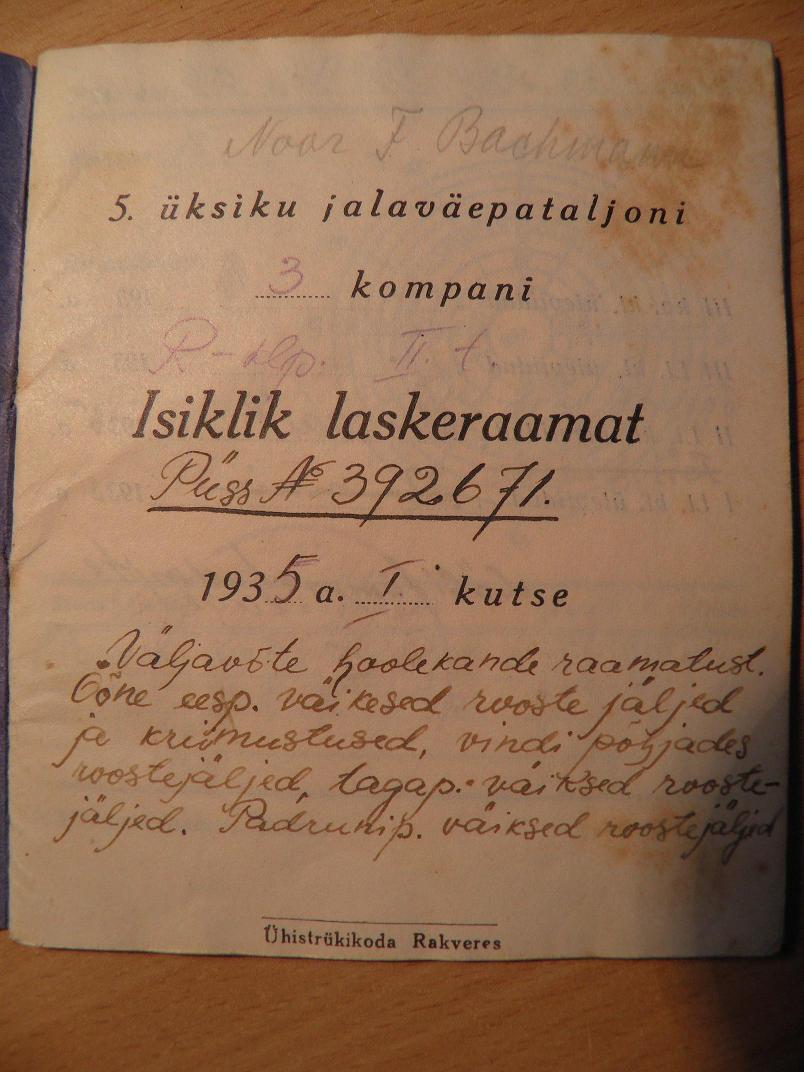 Noor F Bachmann
5. üksiku jalaväepataljoni
3 kompani
II.
Isiklik laskeraamat
Püss № 392671.
1935 a. I. kutse
Väljavõte hoolekande raamatust.
Õõne eesp. väikesed rooste jäljed
ja kriimustused, vindi põhjades
roostejäljed, tagap. väiksed rooste-
jäljed. Padrunip. väiksed roostejäljed
Ühistrükikoda Rakveres